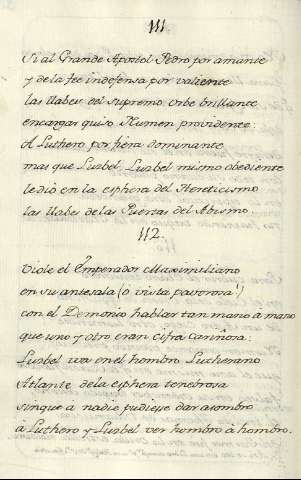 111.
Si al Grande Apostol Pedro por amante
y de la fee indefensa por valiente
las llabes del supremo orbe brillante
encargar quiso Numen providente:
A Luthero por fiera dominante
mas que Luzbel, Luzbel mismo obediente
le dió en la esphera del Hereticismo
las llabes de las Puertas del Abismo.
112.
Viole el Emperador Maximiliano
en su antesala (o vista pavorosa!)
con el Demonio hablar tan mano a mano
que uno y otro eran cifra cariñosa:
Luzbel era en el hombro Lutherano
Atlante de la esphera tenebrosa
sin que a nadie pudiese dar asombro
a Luthero y Luzbel ver hombro à hombro.